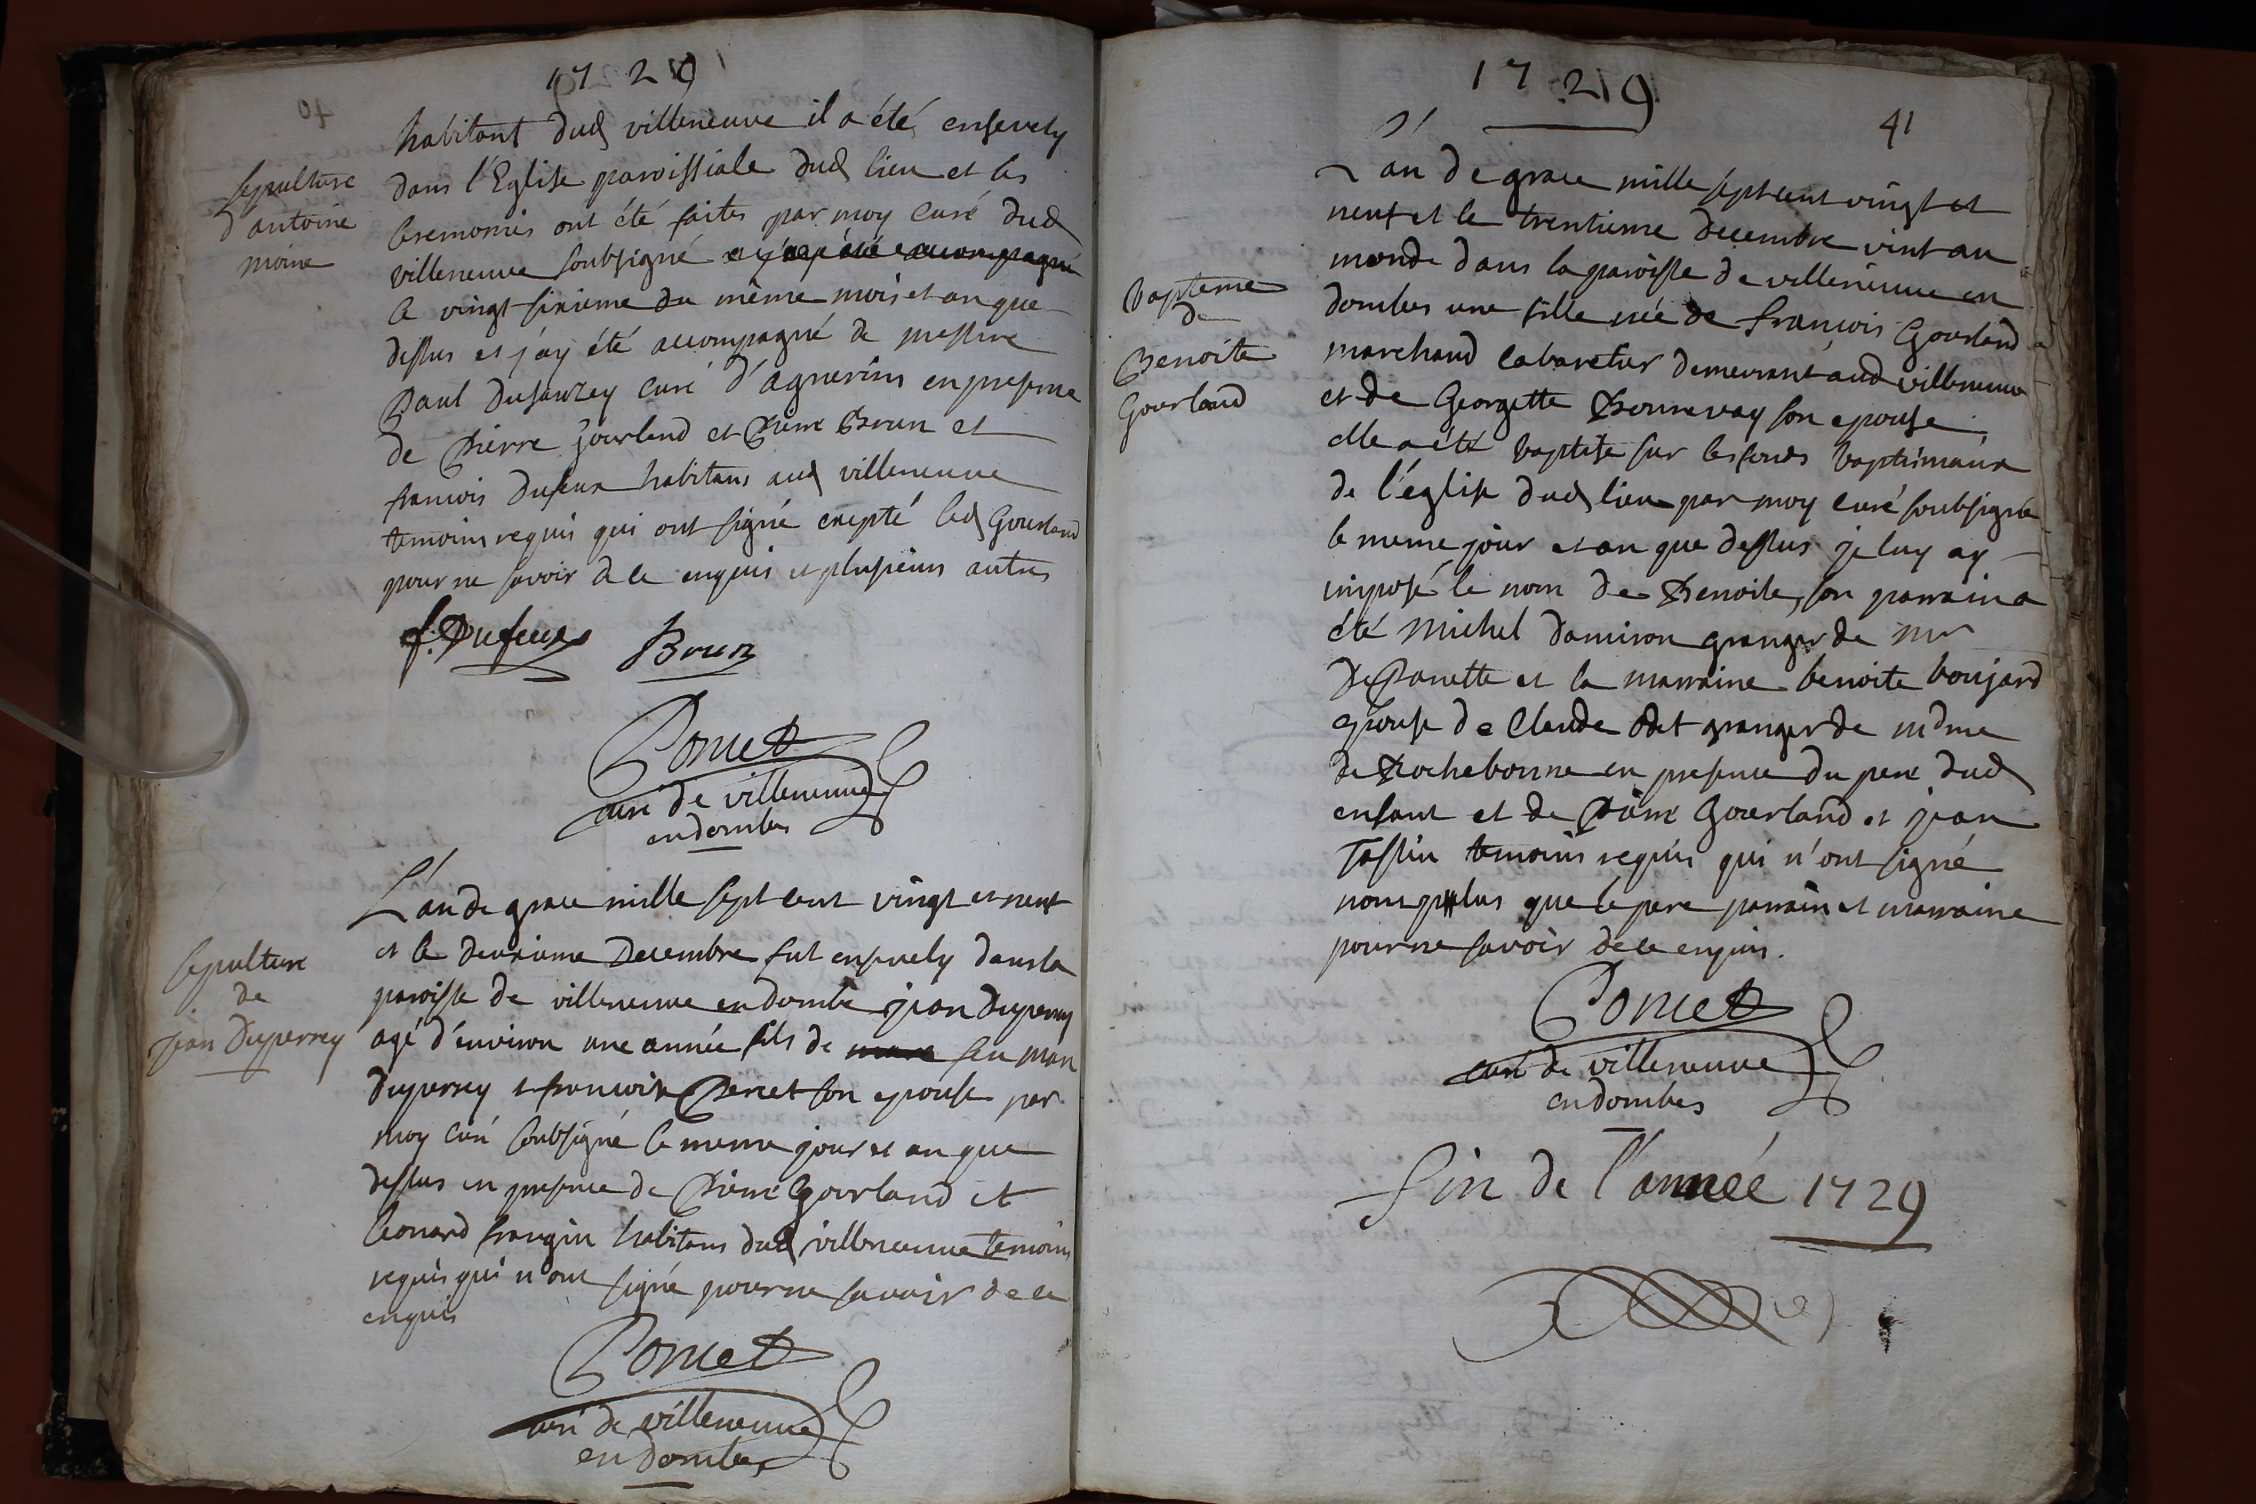 1729
habitant dud villeneuve il a été ensevely
dans l'Eglise paroissiale dud lieu et les
ceremonies ont été faites par moy curé dud
villeneuve soubsigné
le vingt sixieme du même mois et an que
dessus et j'ay été accompagné de messire
Paul Dusauzey curé d'Agnerins en presence
de Pierre Gourland et Pierre Brun et
francois Dufeux habitans aud villeneuve
temoins requis qui ont signé excepté led Gourland
pour ne savoir de ce enquis et plusieurs autres
Sepulture
d'antoine
moine
f. Dufeux Brun
Poncet
curé de villeneuve
en dombes
L'an de grace mille sept cent vingt et neuf
et le deuxieme Decembre fut ensevely dans la
paroisse de villeneuve en dombe jean Duperrey
agé d'environ une année fils de feu marc
Duperrey et francoise Perret son epouse par
moy curé soubsigné le meme jour et an que
dessus en presence de Pierre Gourland et
leonard frangin habitans dud villeneuve temoins
requis qui n'ont signé pour ne savoir de ce
enquis
Sepulture
de
jean Duperrey
Poncet
curé de villeneuve
en dombes
1729
41
L'an de grace mille sept cent vingt et
neuf et le trentieme decembre vint au
monde dans la paroisse de villeneuve en
dombes une fille née de francois Gourland
marchand cabaretier demeurant aud villeneuve
et de Georgette Bonnevay son epouse
elle a été baptisé sur les fonds baptismaux
de l'église dud lieu par moy curé soubsigné
le meme jour et an que dessus je luy ay
imposé le nom de Benoite, son parrain a
été Michel damiron granger de Mr
De Ponette et la marraine benoite boujard
epouse de Claude Odet granger de mdme
de Rochebonne en presence du pere dud
enfant et de Pierre Gourland et jean
Tassin temoins requis qui n'ont signé
non plus que le pere parrain et marraine
pour ne savoir de ce enquis.
Bapteme
de
Benoite
Gourland
Poncet
curé de villeneuve
en dombes
fin de l'année 1729